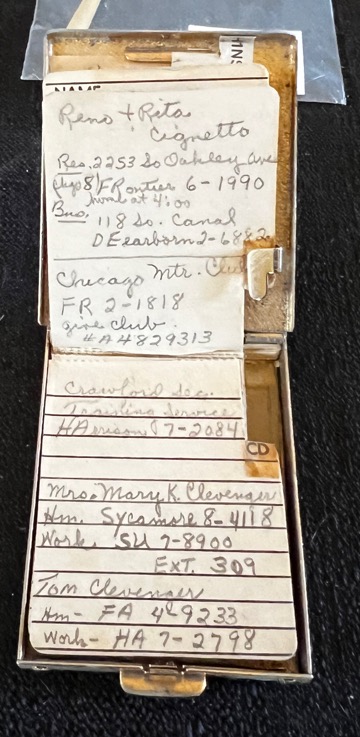 NAME
Reno + Rita
Cignetto
Res. 2253 So Oakley Ave
Chgo 8 FRontier 6-1990
home at 4:00
Bus. 118 So. Canal
DEearborn 2-6882
Chicago Mtr. Club
FR 2-1818
give club
#A4829313
Crawford Sec.
Service
HArrison 7-2084
CD
Mrs. Mary K. Clevenger
Hm. Sycamore 8-4118
Work SU 7-8900
EXT. 309
Tom Clevenger
Hm- FA 4-9233
Work- HA 7-2798